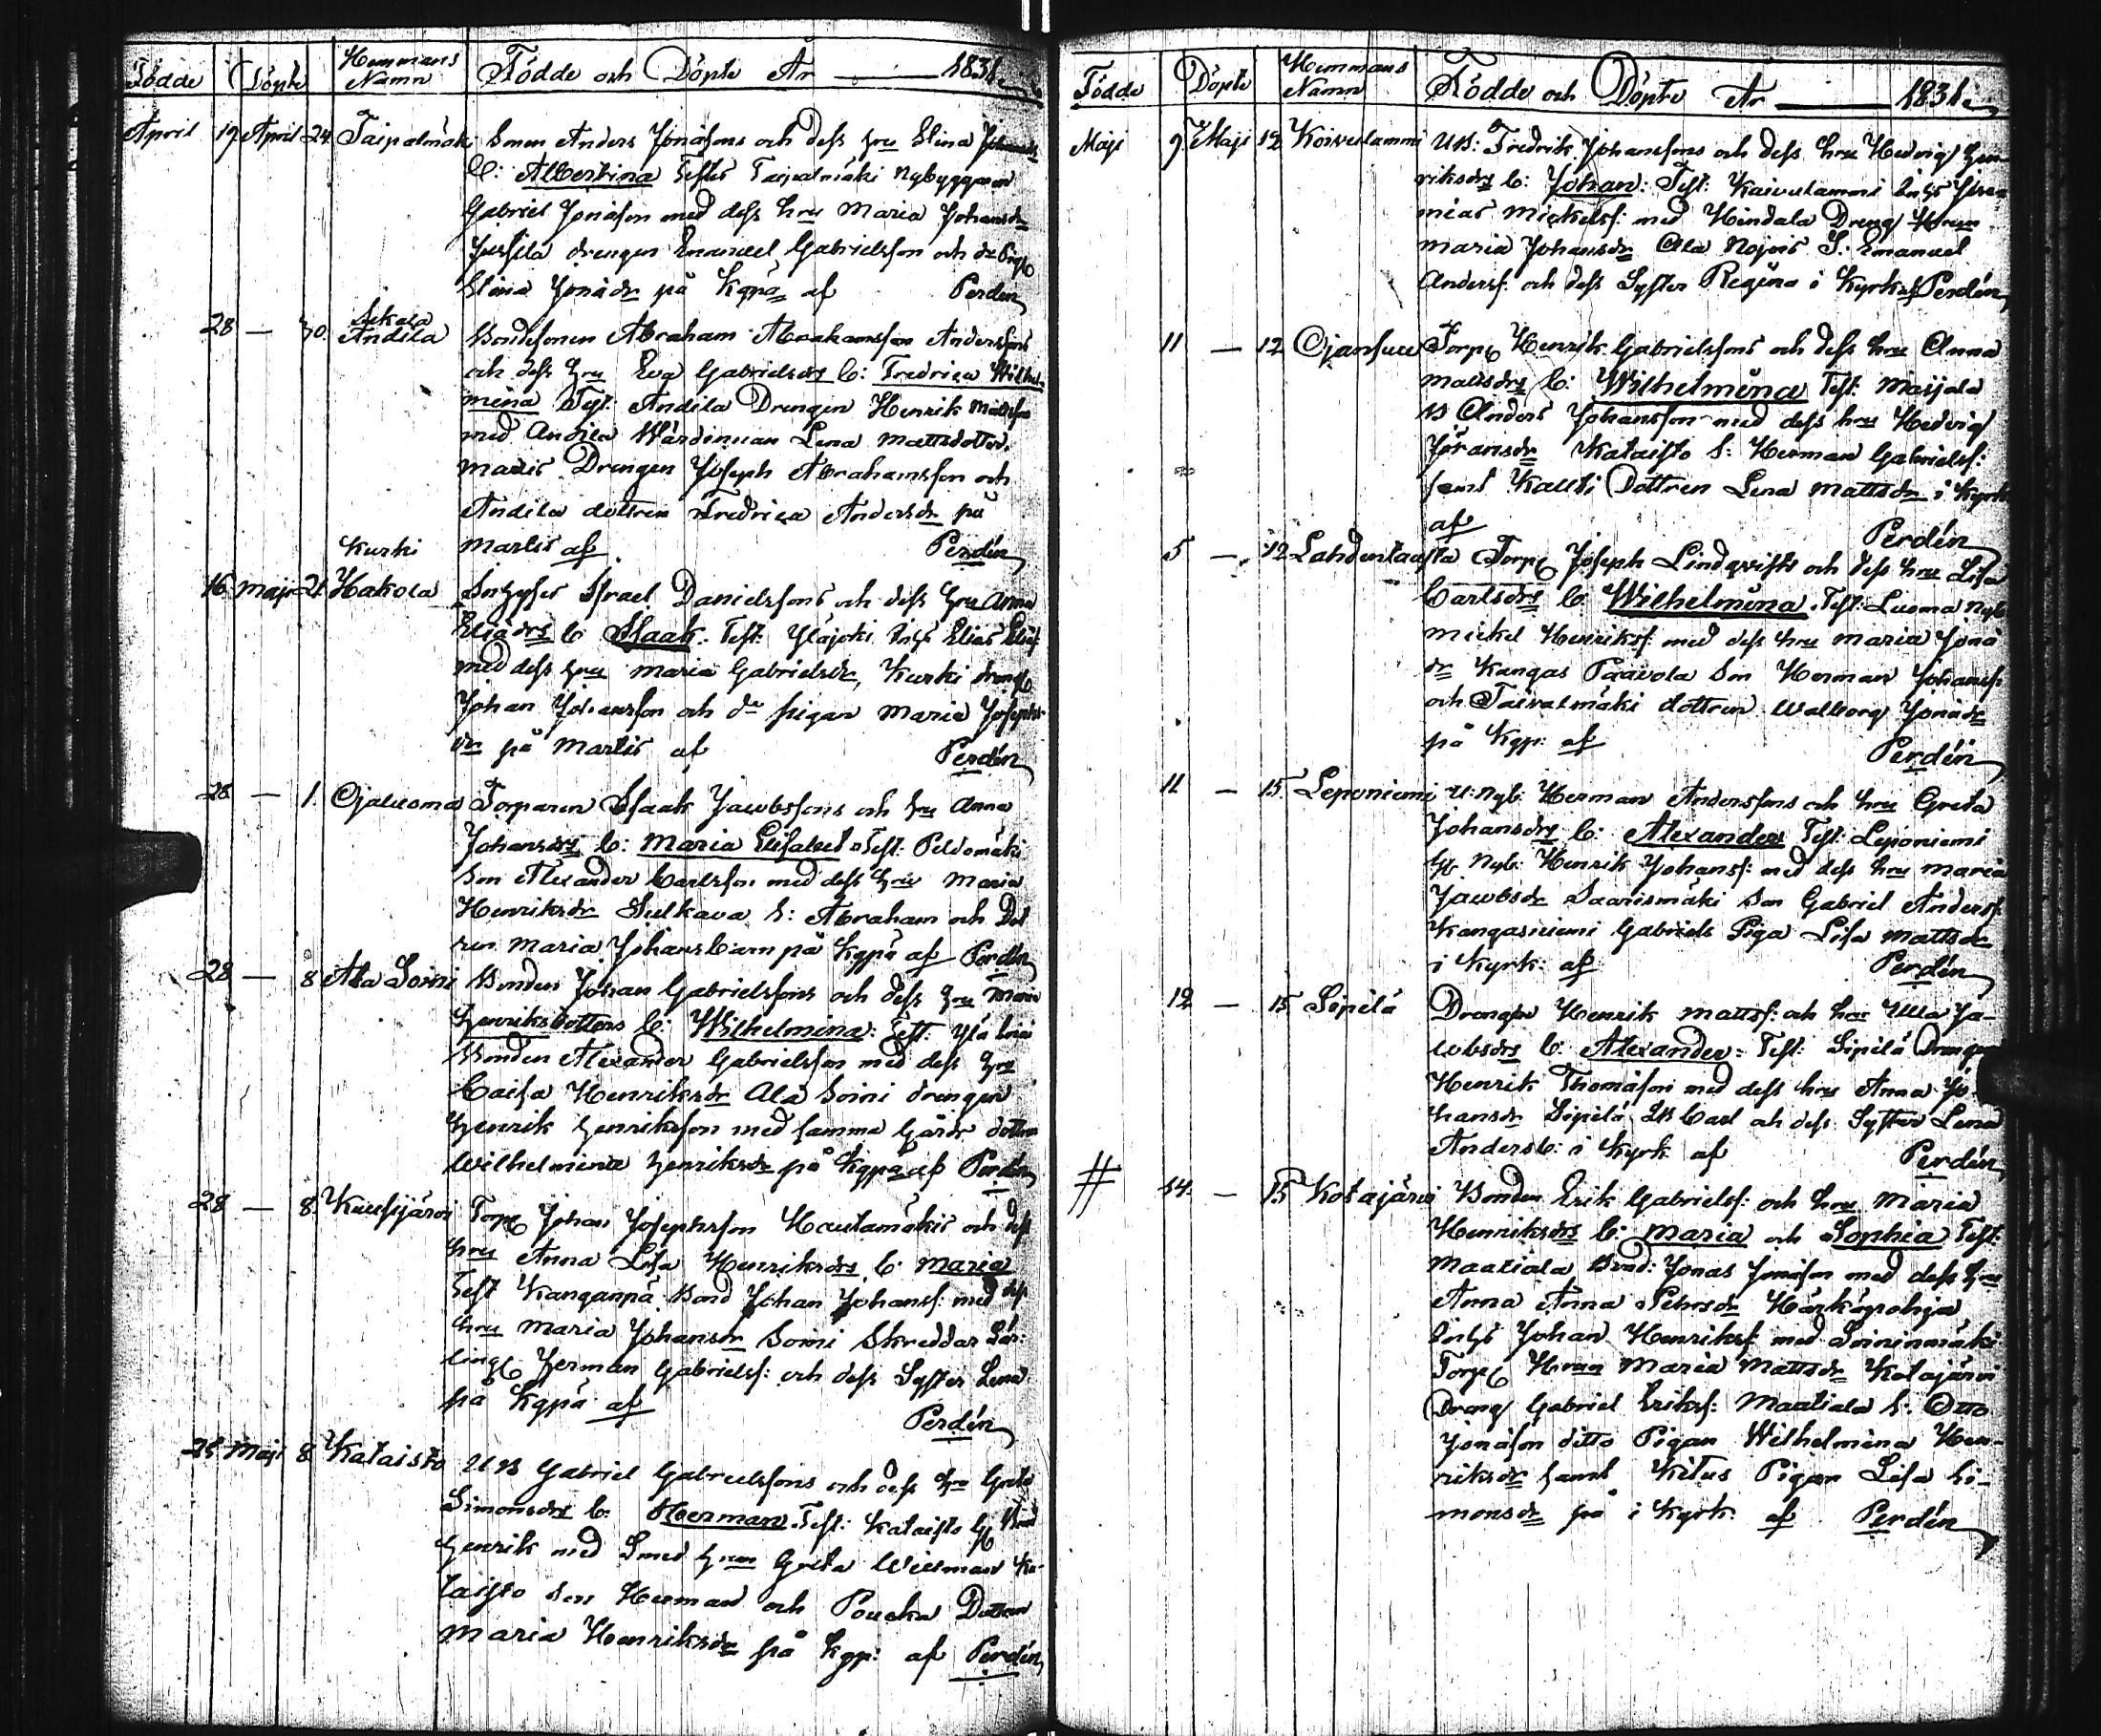 Födde Döpte Hemmans Namn Födde och Döpte År 1831
April 17 April 24 Taipalmäki Sonen Anders Jonäsons och dess hru Elina
B: Albertina Testes Taipalmäki Nybyggaren
Gabriel Jonäson med dess hru Maria Johansdr
Jussila drengen Emanuel Gabrielsson och
Elina Jonädr på Kgpä af Perdén
28 — 30. Andila Bondesonen Abraham Abrahamsson Anderssons
och dess hru Eva Gabrielsdrs b: Fredrica Wilhel
mina Test: Andila Drengen Henrik
med Andila Wärdinnan Lena Mattsdotter.
Matis Drengen Joseph Abrahamsson och
Andila dottren Fredrica Andersdr på
Kurki Martis af Perdén
16 Maji 21. Hakola Israel Danielssons och dess hru Anna
Eliädrs b Isaak. Test: Yläjoki Elias
med dess hru Maria Gabrielsdr, Kurki
Johan Johansson och do pigan Maria Josephs
dr på Martis af Perdén
28 — 1. Ojaluoma Torparen Isaak Jacobssons och hru Anna
Johansdrs b: Maria Elisabet Test: Peldomäki
Son Alexander Carlsson med dess hru Maria
Henriksdr Sulkava S: Abraham och Dot
ren Maria Johansbarn på Kgpä af Perdén
28 — 8 Ala Soini Bonden Johan Gabrielssons och dess hru Maria
Henriksdotters b: Wilhelmina: Test: Ylä Soini
Bonden Alexander Gabrielsson med dess hru
Caisa Henriksdr Ala Soini drengen
Henrik Henriksson med samma Gårds dotter
Wilhelmina Henriksdr på Kgpä af Perdén
28 — 8. Kuusijärvi Torp Johan Josephsson Hautamäkis och dess
hru Anna Lisa Henriksdrs b: Maria
Test Kanganpä Bond Johan Johanss: med dess
hru Maria Johansdr Soini Skreddar Lär
ling Herman Gabrielss: och dess Syster Lena
på Kgpä af Perdén
25 Maji 8 Kataisto UB Gabriel Gabrielssons och dess hru Greta
Simonsdrs b: Herman. Test: Kataisto
Henrik med Smed hrun Greta Willman Ka-
taisto Son Herman och Poucka Dottren
Maria Henriksdr på Kgp: af Perdén
Födde Döpte Hemmans Namn Födde och Döpte År 1831
Maji 9 Maji 12 Koivulammi UB: Fredrik Johanssons och dess hru Hedvig Hen
riksdrs b: Johan: Test: Kaivulammi
mias Mickelss: med Hindala Dreng
Maria Johansdr Ala Nojois S. Emanuel
Anderss: och dess Syster Regina i Kyrk af Perdén
11 — 12 Ojansuu Torp Henrik Gabrielssons och dess hru Anna
Mattsdrs b: Wilhelmina Test: Maijala
B Anders Johansson med dess hru Hedvig
Jöransdr Kataisto S: Herman Gabrielss:
samt Kauti Dottren Lena Mattsdr i Kyrk
af Perdén
5 — 12 Lahdentausta Torp Joseph Lindqvists och dess hru Lisa
Carlsdrs b: Wilhelmina. Test: Luoma Nyb
Mickel Henrikss: med dess hru Maria Jonä
dr Kangas Paavola Son Herman Johanss:
och Taivalmäki dottren Walborg Jonädr
på Kgp: af Perdén
11 — 15. Leponiemi U: Nyb: Herman Anderssons och hru Greta
Johansdrs b: Alexander Test: Leponiemi
Nyb: Henrik Johanss: med dess hru Maria
Jacobsdr Saarismäki Son Gabriel Anderss:
Kangasniemi Gabriels Piga Lisa Mattsdr
i Kyrk: af Perdén
12 — 15 Sipilä Drengen Henrik Mattss: och hru Ulla Ja-
cobsdrs b: Alexander: Test: Sipilä Drengen
Henrik Thomäson med dess hru Anna Jo
hansdr Sipilä Carl och dess Syster Lena
Andersb: i Kyrk af Perdén
# 14. — 15 Kotajärvi Bonden Erik Gabrielss: och hru Maria
Henriksdrs b: Maria och Sophia Test:
Maaliala Bond: Jonas Jonäson med dess hru
Anna Anna Pehrsdr Härkägrohja
Johan Henrikss: med Soininmäki
Torp Hrun Maria Mattsdr Kotajärvi
Dreng Gabriel Erikss: Maatiala S: Otto
Jonäson ditto Pigan Wilhelmina Hen-
riksdr samt Kitus Pigan Lisa Si-
monsdr på i Kyrk af Perdén